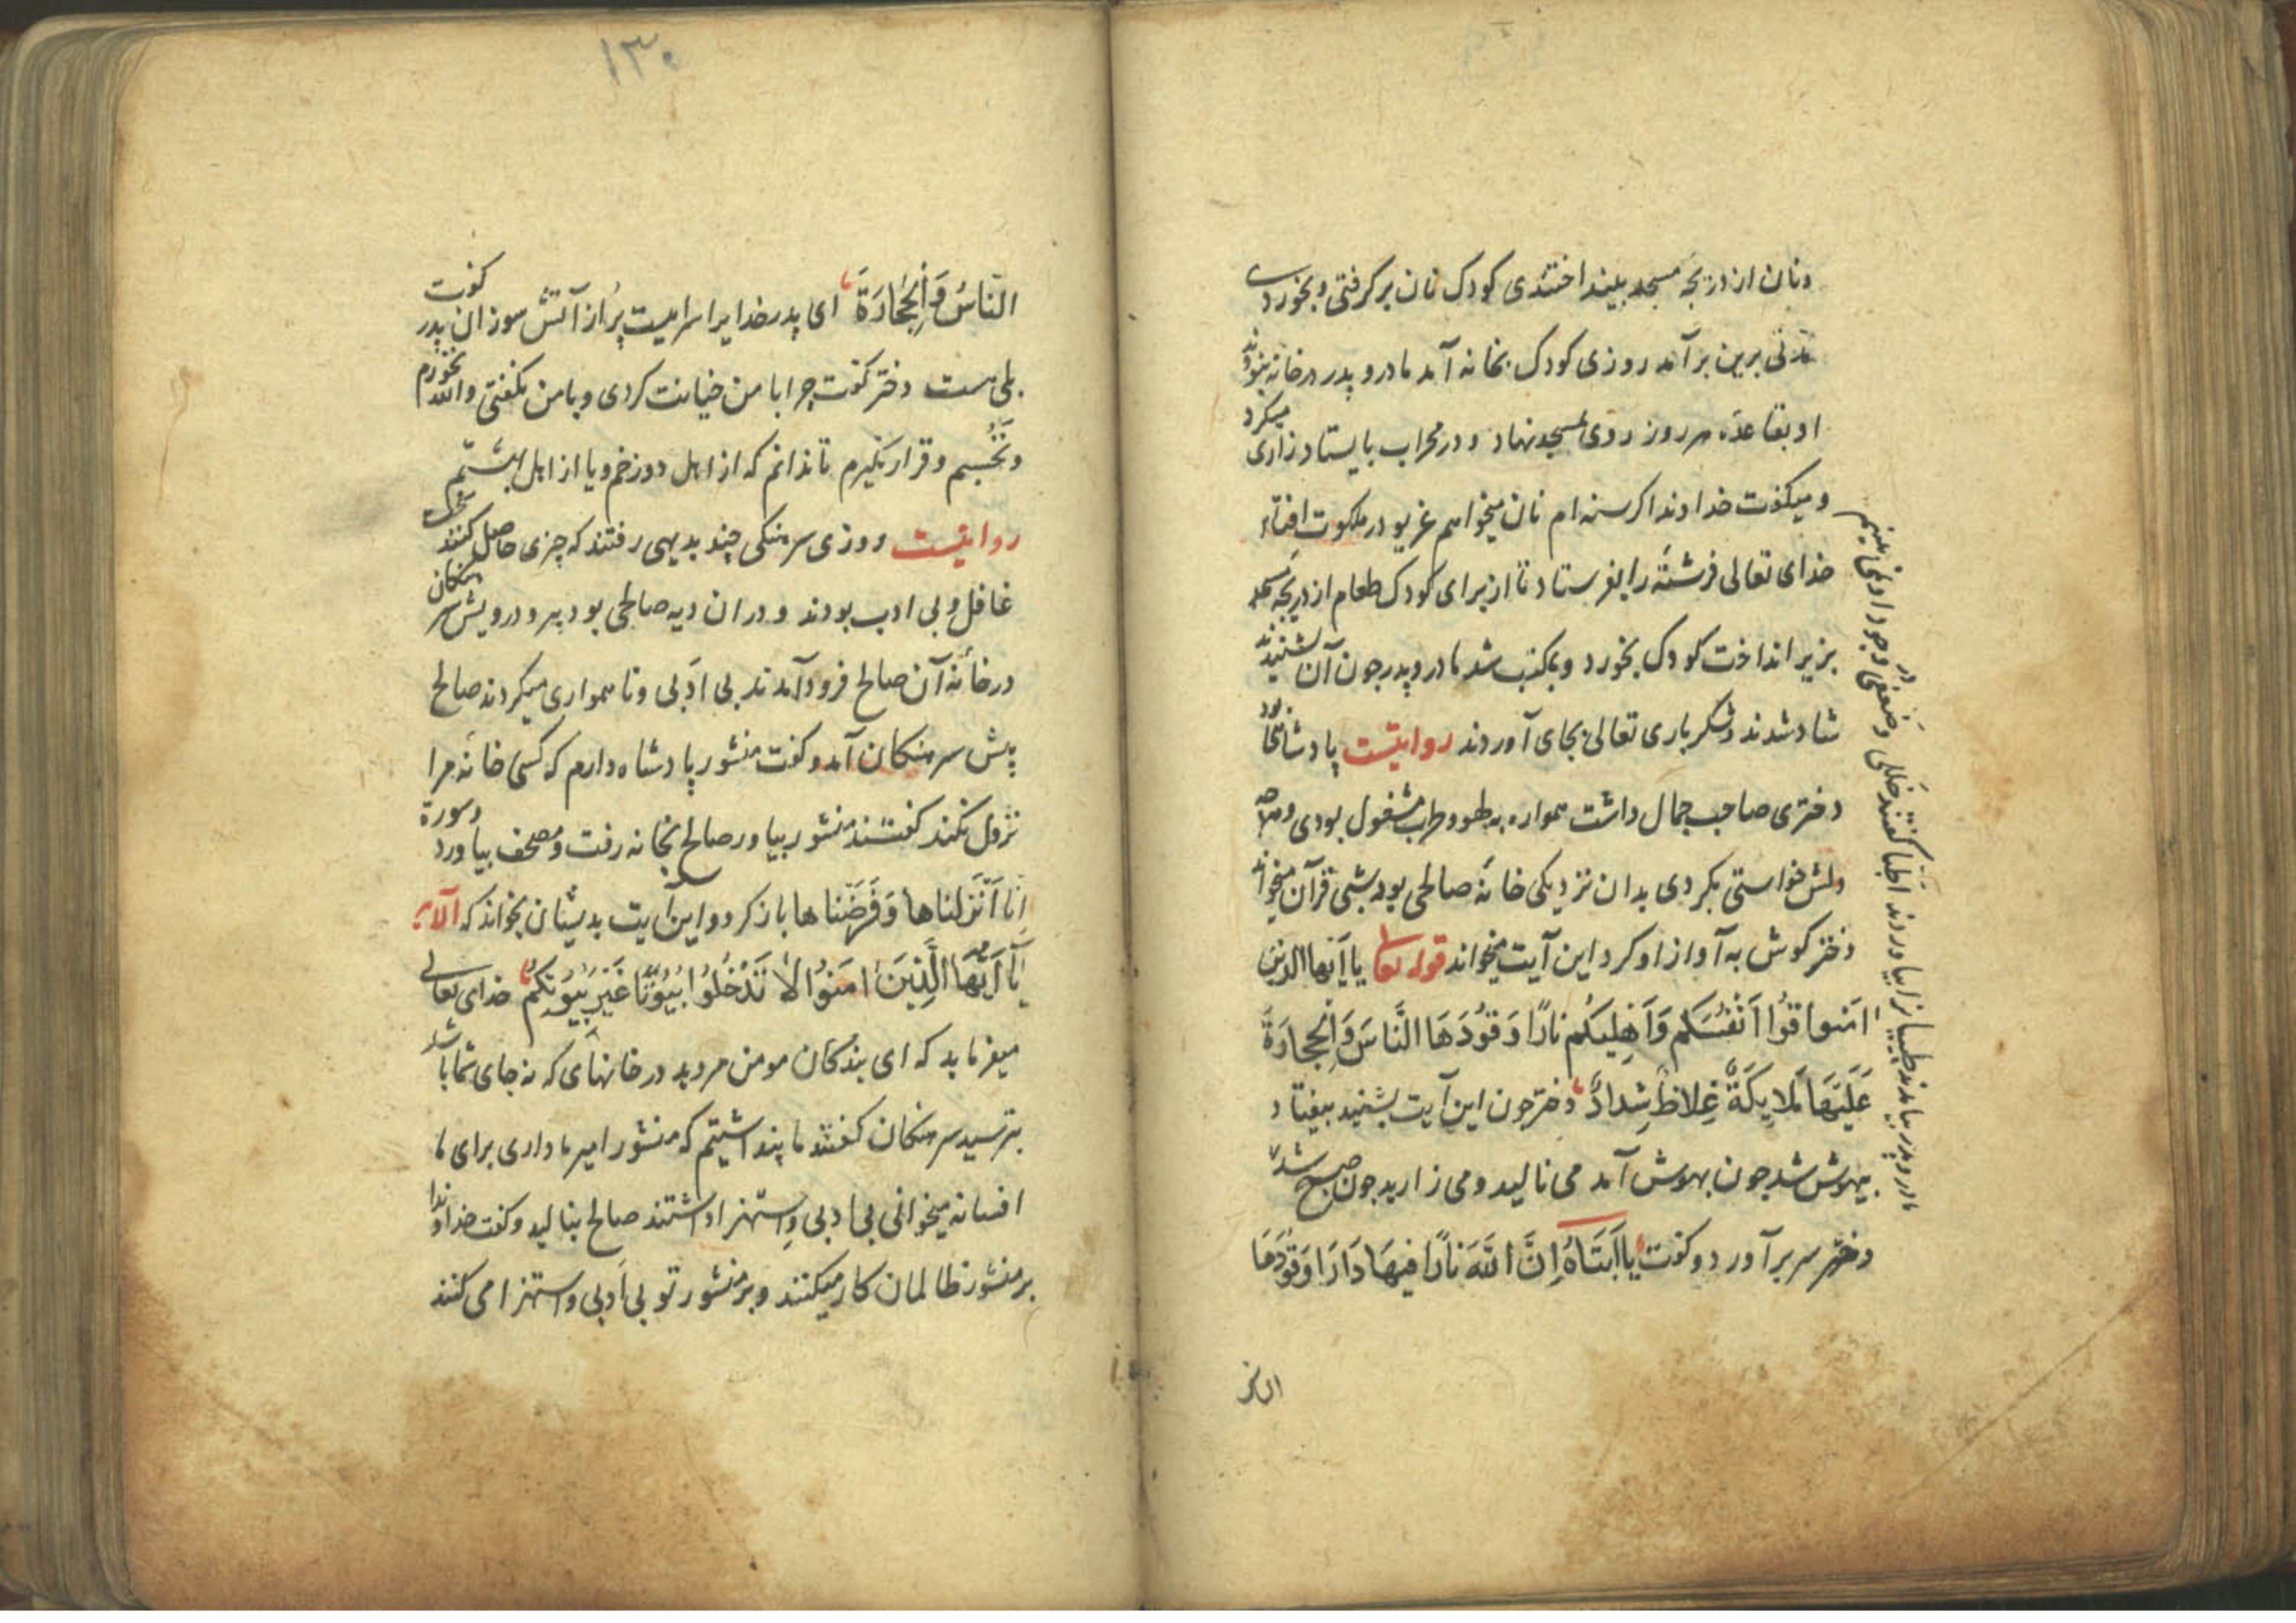 ونان از دریجهٔ مسجد بینداختندی کودک نان برکرفتی و بخوردی
مدتی برین برآمد روزی کودک بخانه آمد مادر و پدر در خانه نبودند
او بقاعدهٔ هر روز روی بمسجد نهاد و در محراب بایستاد زاری میکرد
و میکفت خداوندا کرسنه ام نان میخواهم غریو در ملکوت افتاد
خدای تعالی فرشتهٔ را بفرستاد تا از برای کودک طعام از دریجهٔ مسجد
بزیر انداخت کودک بخورد و بمکتب شد مادر و پدر جون آن شنیدند
شاد شدند و شکر باری تعالی بجای آوردند روایتست پادشاهی بود
دختری صاحب جمال داشت همواره به لهو و طرب مشغول بودی و هرچه
دلش خواستی بکردی بدان نزدیکی خانهٔ صالحی بود شبی قرآن میخواند
دختر کوش به آواز او کرد این آیت میخواند قوله تعا یا اَیُّها الذین
امَنوا قُوا اَنْفُسَکُم وَاَهْلِیکُم نارًا وَقُودُهَا النَّاسُ وَالْحِجارَةُ
عَلَیْهَا مَلایِکَةٌ غِلاظٌ شِدادٌ دختر جون این آیت بشنید بیفتاد و
بیهوش شد جون بهوش آمد می نالید و می زارید جون صبح شد
دختر سر برآورد و کفت یا اَبَتَاهُ اِنَّ اللّهَ نارًا فیهَا دَارَا وَقُودُهَا
مادر و پدر بیامدند طبیبانرا بیاوردند اطبا کفتند خللی و ضعفی در وجود او نمی بینیم
الناس
١٣٠
النّاسُ وَالْحِجَارَةُ ای پدر خدایرا سراییست پُر از آتش سوزان پدر کفت
بلی هست دختر کفت چرا با من خیانت کردی و با من نکفتی والله نخورم
و نَخُسبم و قرار نکیرم تا ندانم که از اهل دوزخم و یا از اهل بهشتم
روایتست روزی سرهنکی چند بدیهی رفتند که چیزی حاصل کنند
غافل و بی ادب بودند و در ان دیه صالحی بود پیر و درویش سرهنکان
در خانهٔ آن صالح فرود آمدند بی اَدَبی و ناهمواری میکردند صالح
پیش سرهنکان آمد و کفت منشور پادشاه دارم که کسی خانهٔ مرا
نزول نکند کفتند منشور بیاور صالح بخانه رفت و مصحف بیاورد و سورة
اِنّا اَنْزَلناها وَفَرَضْنا ها باز کرد و این آیت بدیشان بخواند که الآیه
یا اَیُّهَا الَّذِینَ امَنُوا لاٰ تَدْخُلُوا بُیُوتًا غَیْرَ بُیُوتِکُمْ خدای تعالی
میفرماید که ای بندکان مومن مروید در خانهای که نه جای شما باشد
بترسید سرهنکان کفتند ما پنداشتیم که منشور امیر ما داری برای ما
افسانه میخوانی بی ادبی و استهزا داشتند صالح بنالید و کفت خداوندا
بر منشور ظالمان کار میکنند و بر منشور تو بی اَدبی و استهزا می کنند